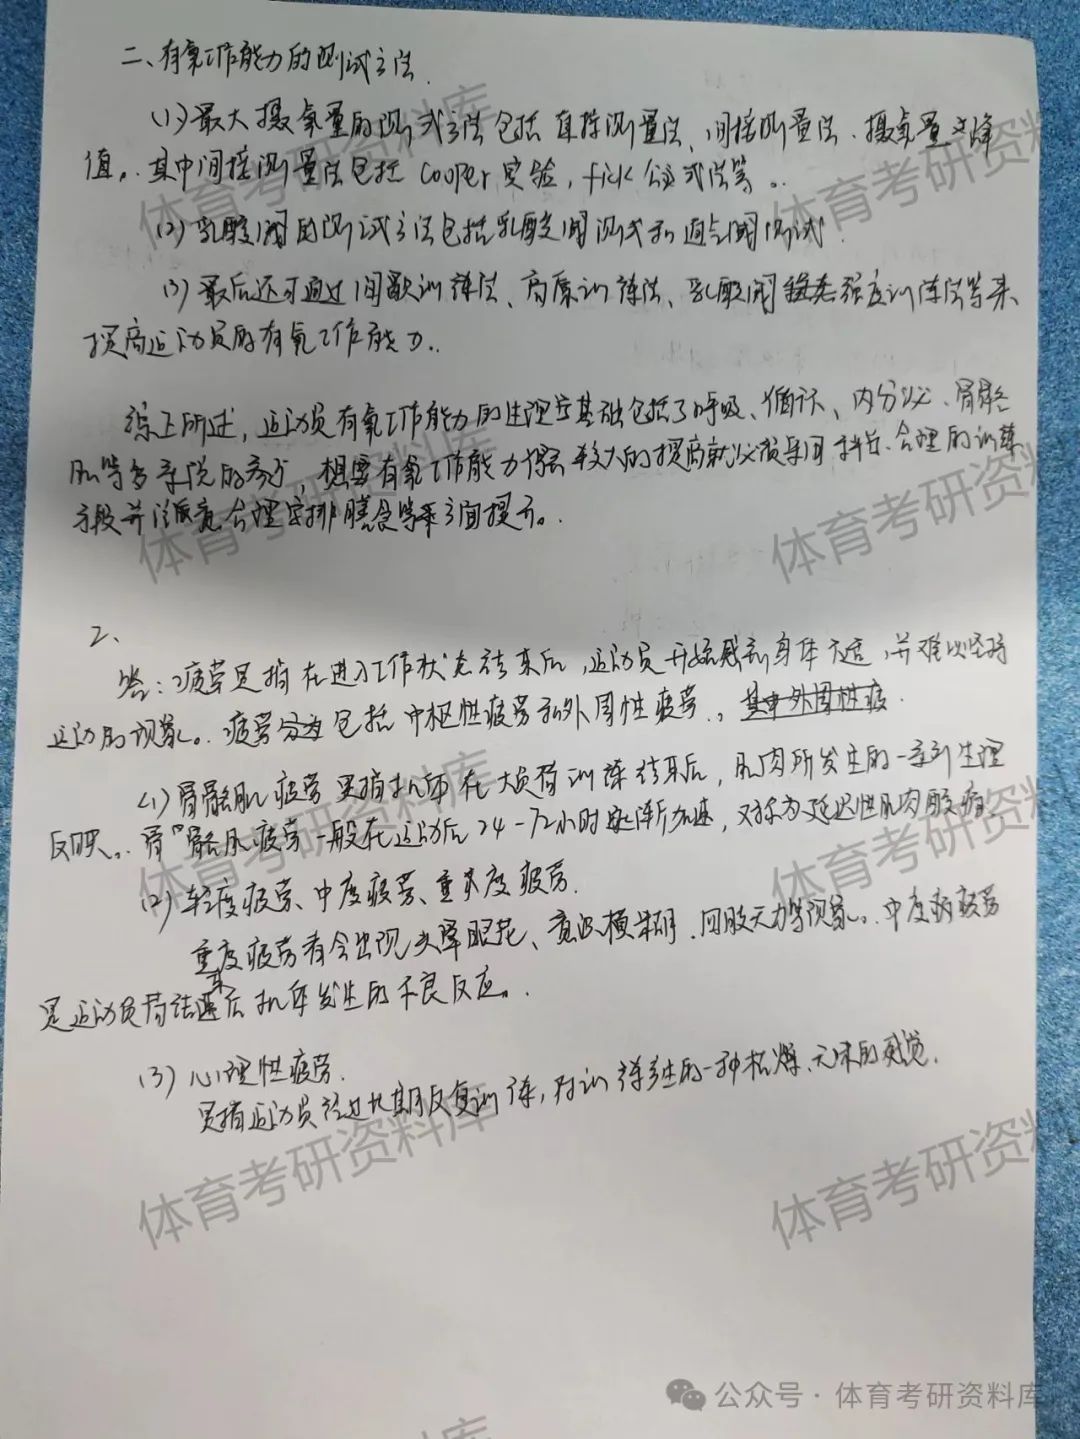 二、有氧工作能力的测试方法.
(1)最大摄氧量的测试方法包括直接测量法、间接测量法、摄氧量峰
值。其中间接测量法包括Cooper实验,fick公式法等。
(2)乳酸阈的测试方法包括乳酸阈测试和通气阈测试.
(3)最后还可通过间歇训练法、高原训练法、乳酸阈强度训练法等来
提高运动员的有氧工作能力.
综上所述,运动员有氧工作能力的生理学基础包括了呼吸、循环、内分泌、骨骼
肌等多系统的参与,想要有氧工作能力得到较大的提高就必须采用科学、合理的训练
手段并注重合理安排膳食等来方面提示。
2、
答:疲劳是指在进入工作状态结束后,运动员开始感到身体不适,并难以坚持
运动的现象。疲劳包括中枢性疲劳和外周性疲劳。其中外周性疲
(1)骨骼肌疲劳是指机体在大负荷训练结束后,肌肉所发生的一系列生理
反映。骨骼肌疲劳一般在运动后24-72小时逐渐加速,又称为延迟性肌肉酸痛.
(2)轻度疲劳、中度疲劳、重度疲劳.
重度疲劳者会出现头晕眼花、意识模糊、四肢无力等现象。中度疲劳
是运动员结束后机体发生的不良反应。
(3)心理性疲劳.
是指运动员经过长期反复训练,对训练产生的一种枯燥、无味的感觉.
体育考研资料库
体育考研资料库
体育考研资料库
体育考研资料库
体育考研资料库
体育考研资料库
体育考研资料库
体育考研资料库
公众号·体育考研资料库